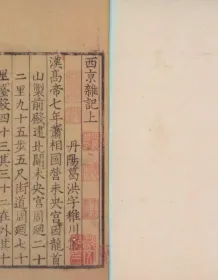 西京雜記上
丹陽葛洪字稚川
漢高帝七年蕭相國營未央宮因龍首
山製前殿建北闕未央宮周廻二十
二里九十五步五尺街道周廻七十
里臺殿四十三其三十二在外其